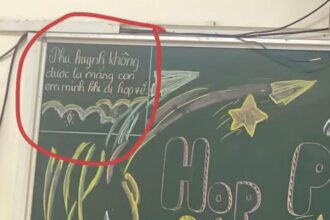 Phụ huynh không
được la mắng con
em mình khi đi họp về.
HỌP P